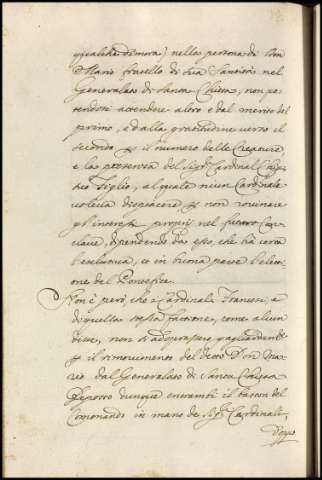 qualche dimora) nella persona di Don
Mario fratello di Sua Santità nel
Generalato di Santa Chiesa, non po-
tendosi attendere altro e dal merito del
primo, e dalla gratitudine verso il
secondo p il numero delle Creature
e la potenza del Sigr Cardinal Chigi
suo figlio, al quale niun Cardinale
voleva dispiacere p non rovinare
gl'interessi proprij nel futuro Con-
clave, dipendendo da esso, che ha certa
l'esclusiva, et in buona parte l'elett-
ione del Pontefice.
Non è però, che i Cardinali Francesi, e
di quella fazzione, come alcun
disse, non si adoprassero gagliardamte
p il rimovimento del detto Don Ma-
rio dal Generalato di Santa Chiesa
Deposto dunque entrambi il baston del
Comando in mano de Sigri Cardinali,
Dopo